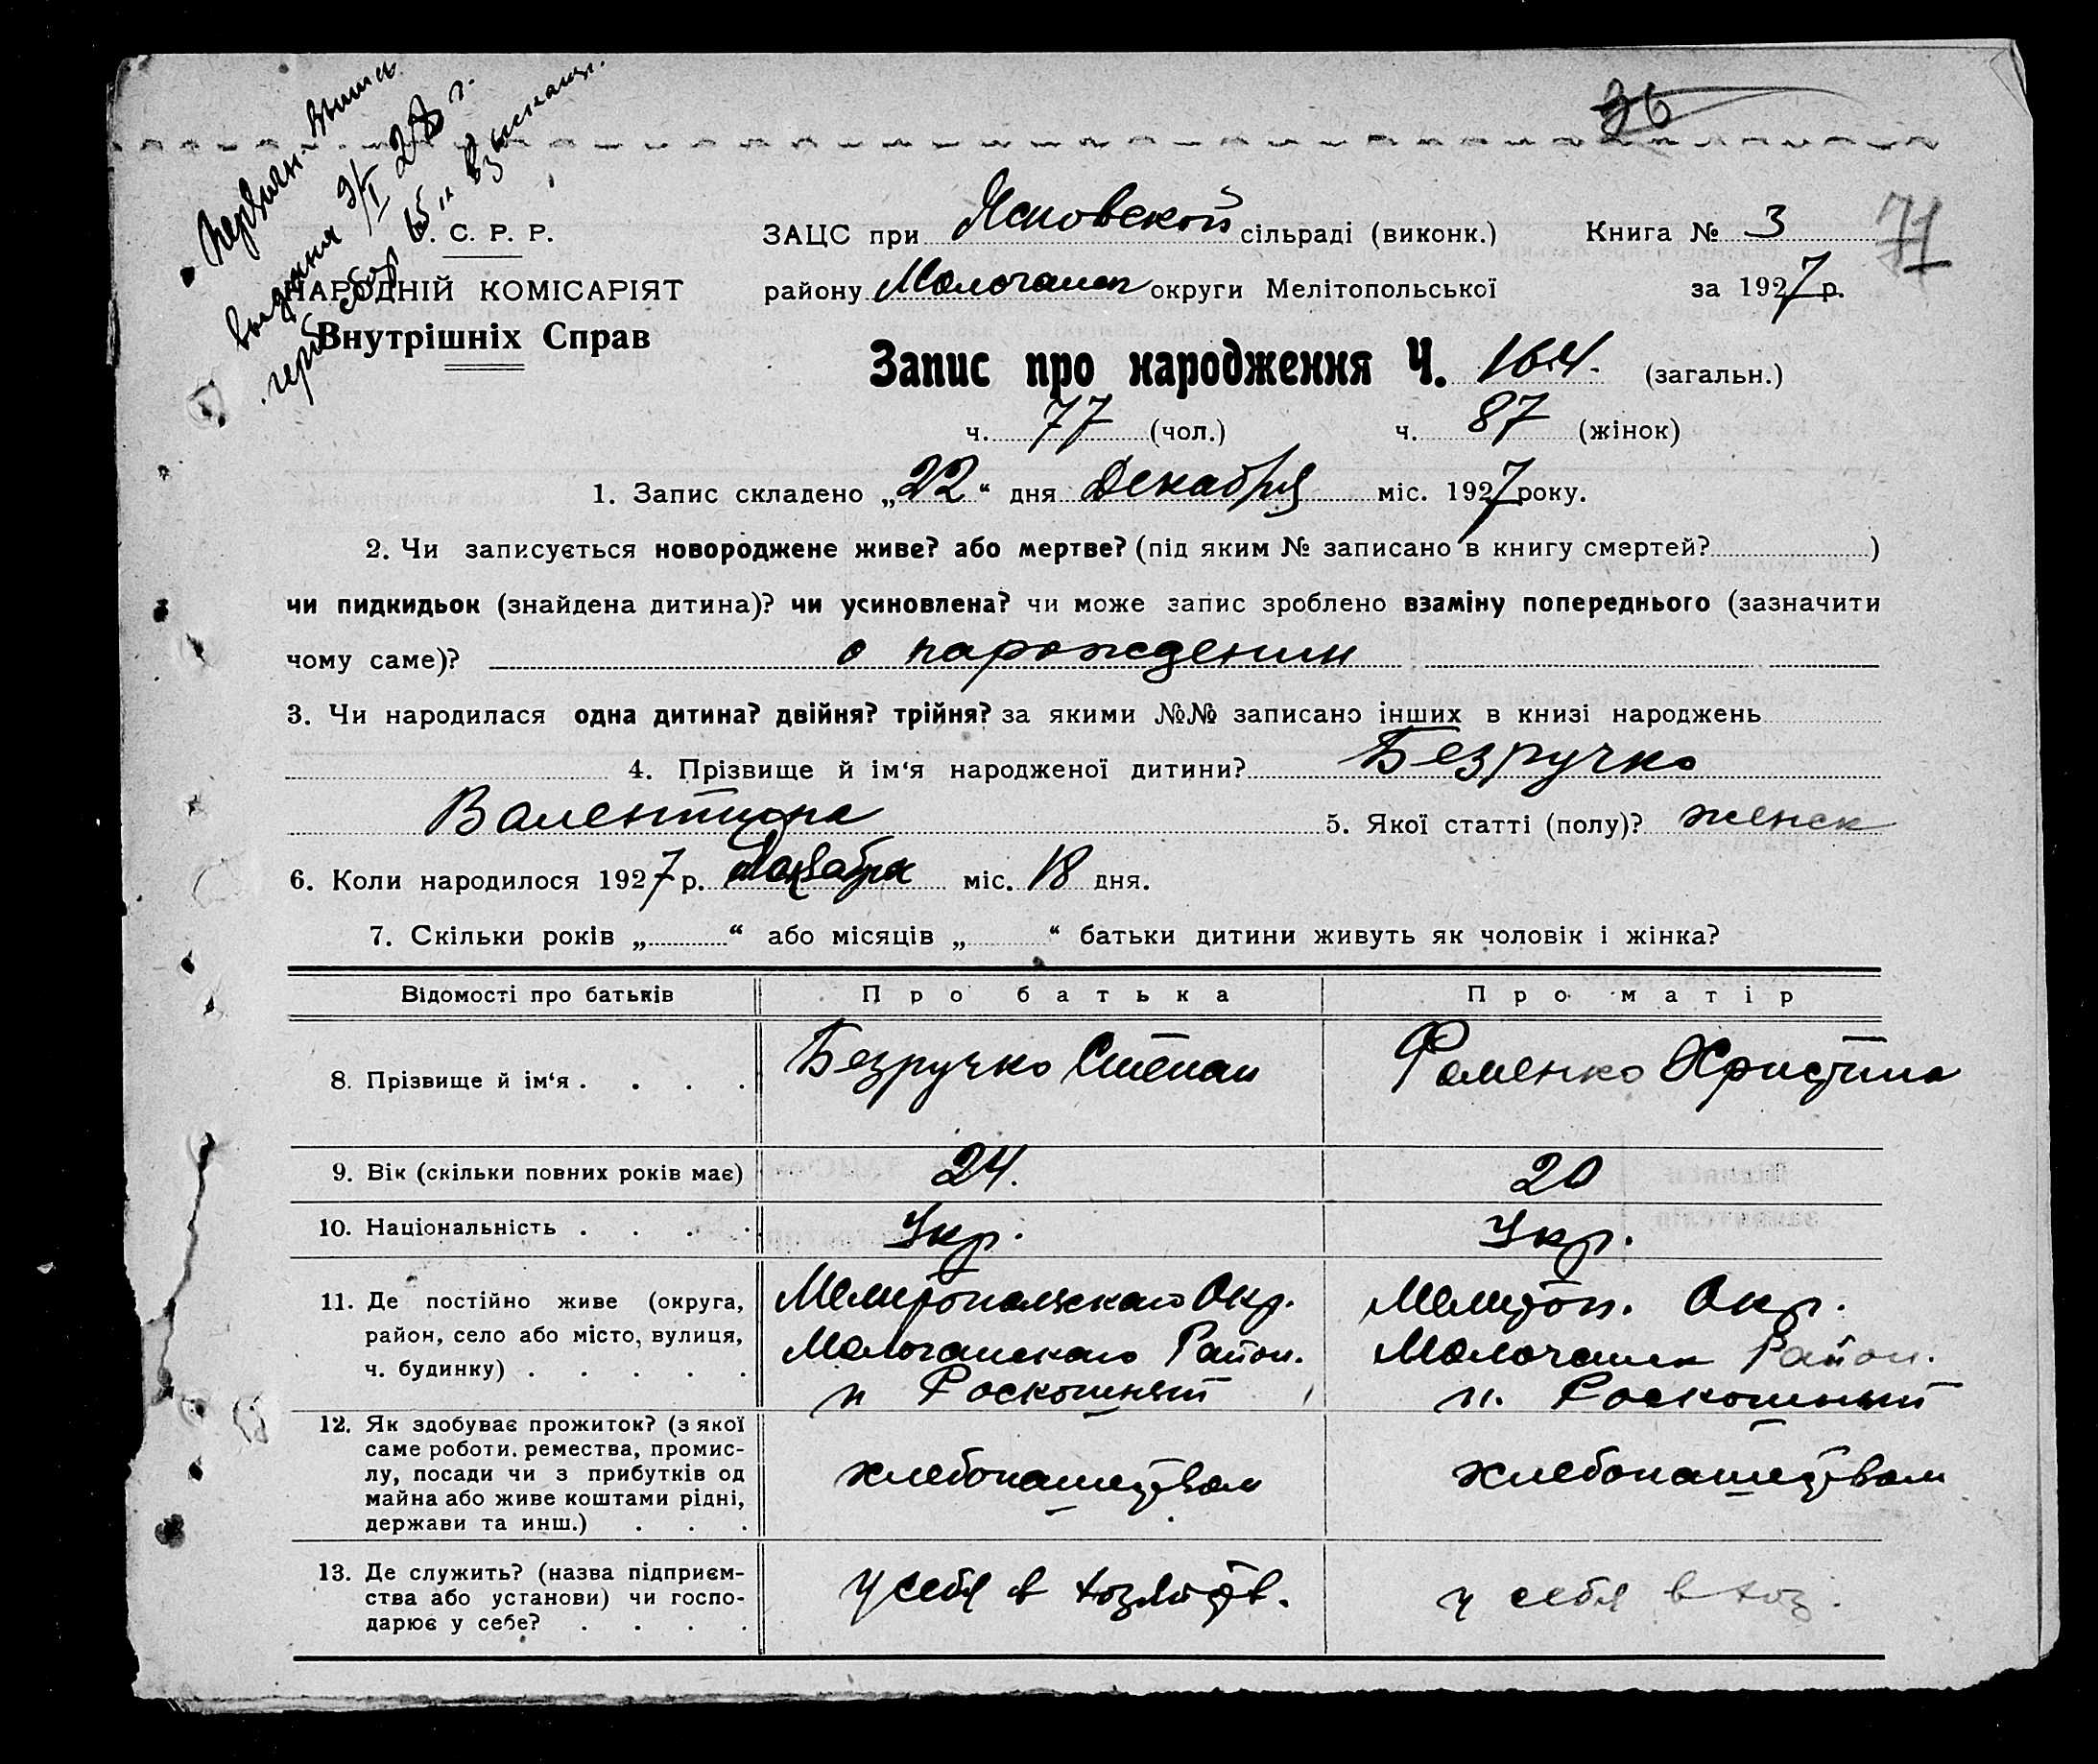 Первич. выпись
выдана 3/I 28 г.
герб. сбор 15 к взыскан.
36
71
У. С. Р. Р.
НАРОДНІЙ КОМІСАРІЯТ
Внутрішніх Справ
ЗАЦС при Ясновской сільраді (виконк.) Книга № 3
району Молочанск округи Мелітопольської за 1927 р.
Запис про народження Ч. 164. (загальн.)
ч. 77 (чол.) ч. 87 (жінок)
1. Запис складено „22“ дня Декабря міс. 1927 року.
2. Чи записується новороджене живе? або мертве? (під яким № записано в книгу смертей? )
чи пидкидьок (знайдена дитина)? чи усиновлена? чи може запис зроблено взаміну попереднього (зазначити
чому саме)? о нарождении
3. Чи народилася одна дитина? двійня? трійня? за якими №№ записано інших в книзі народжень
4. Прізвище й ім‘я народженої дитини? Безручко
Валентина 5. Якої статті (полу)? женск
6. Коли народилося 1927 р. Декабря міс. 18 дня.
7. Скільки років „ “ або місяців „ “ батьки дитини живуть як чоловік і жінка?
Відомості про батьків Про батька Про матір
8. Прізвище й ім‘я . . . . Безручко Степан Фоменко Христина
9. Вік (скільки повних років має) 24. 20
10. Національність . . . . Укр. Укр.
11. Де постійно живе (округа, Мелитопольского Окр. Мелитоп. Окр.
район, село або місто, вулиця, Молочанского Район. Молочанск Район.
ч. будинку) . . . . . п Роскошный п. Роскошный
12. Як здобуває прожиток? (з якої
саме роботи, ремества, промис-
лу, посади чи з прибутків од хлебопашеством хлебопашеством
майна або живе коштами рідні,
держави та инш.) . . .
13. Де служить? (назва підприєм-
ства або установи) чи госпо- у себя в хозяйств. у себя в хоз.
дарює у себе? . . . .